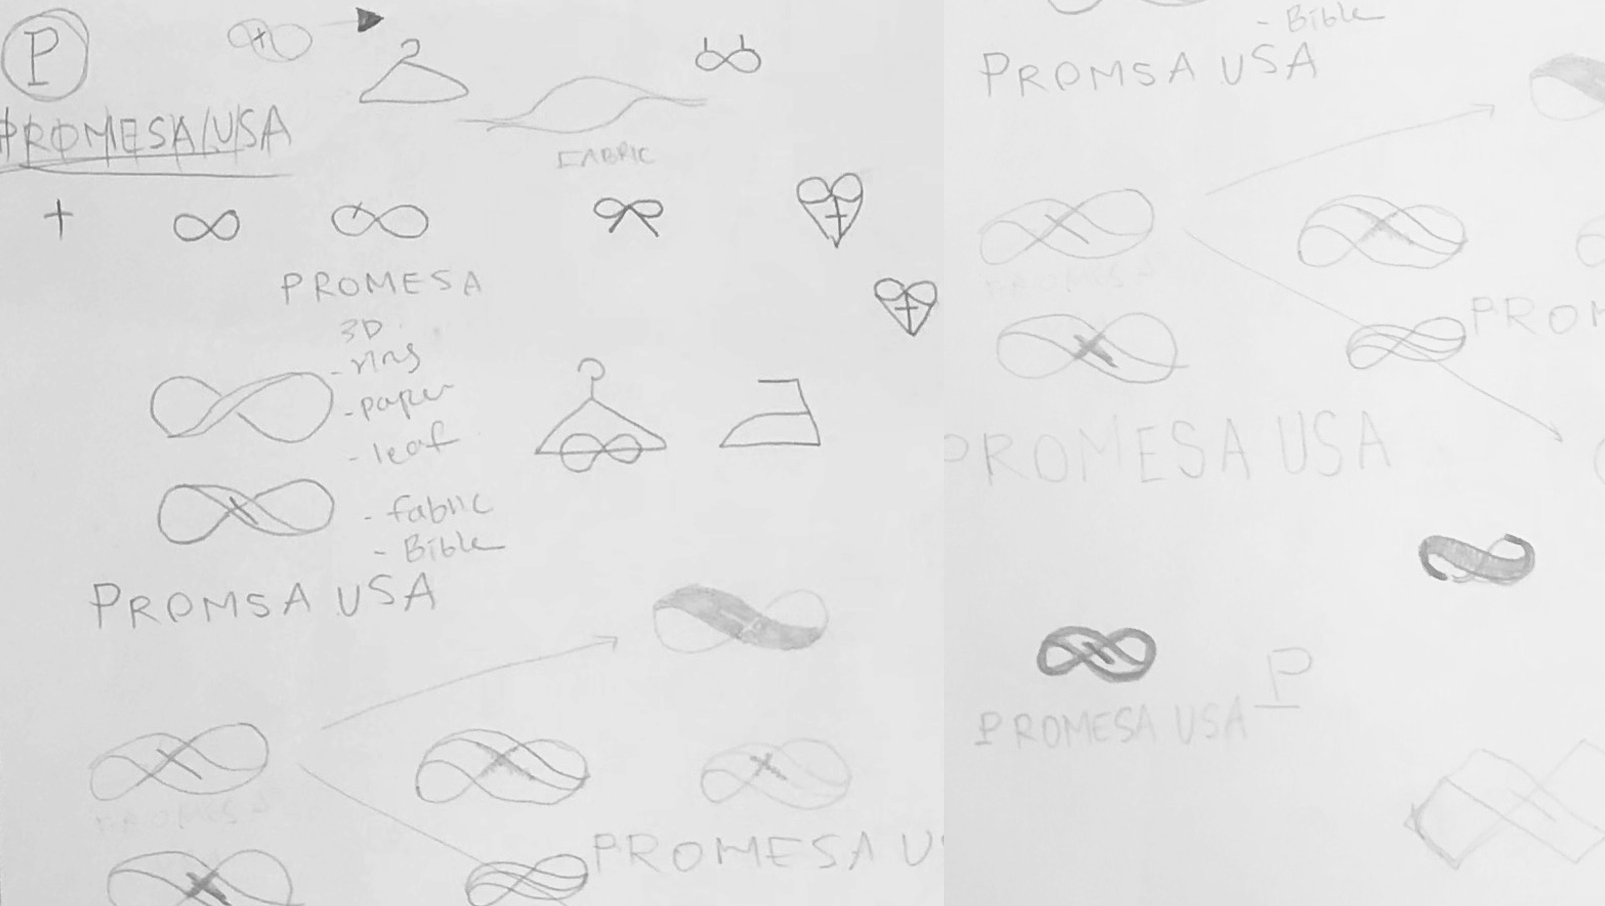 P
PROMESA/USA
FABRIC
PROMESA
3D
- ring
- paper
- leaf
- fabric
- Bible
PROMSA USA
PROMESA
PROMESA U
- Bible
PROMSA USA
PROMESA
PROM
PROMESA USA
P
PROMESA USA